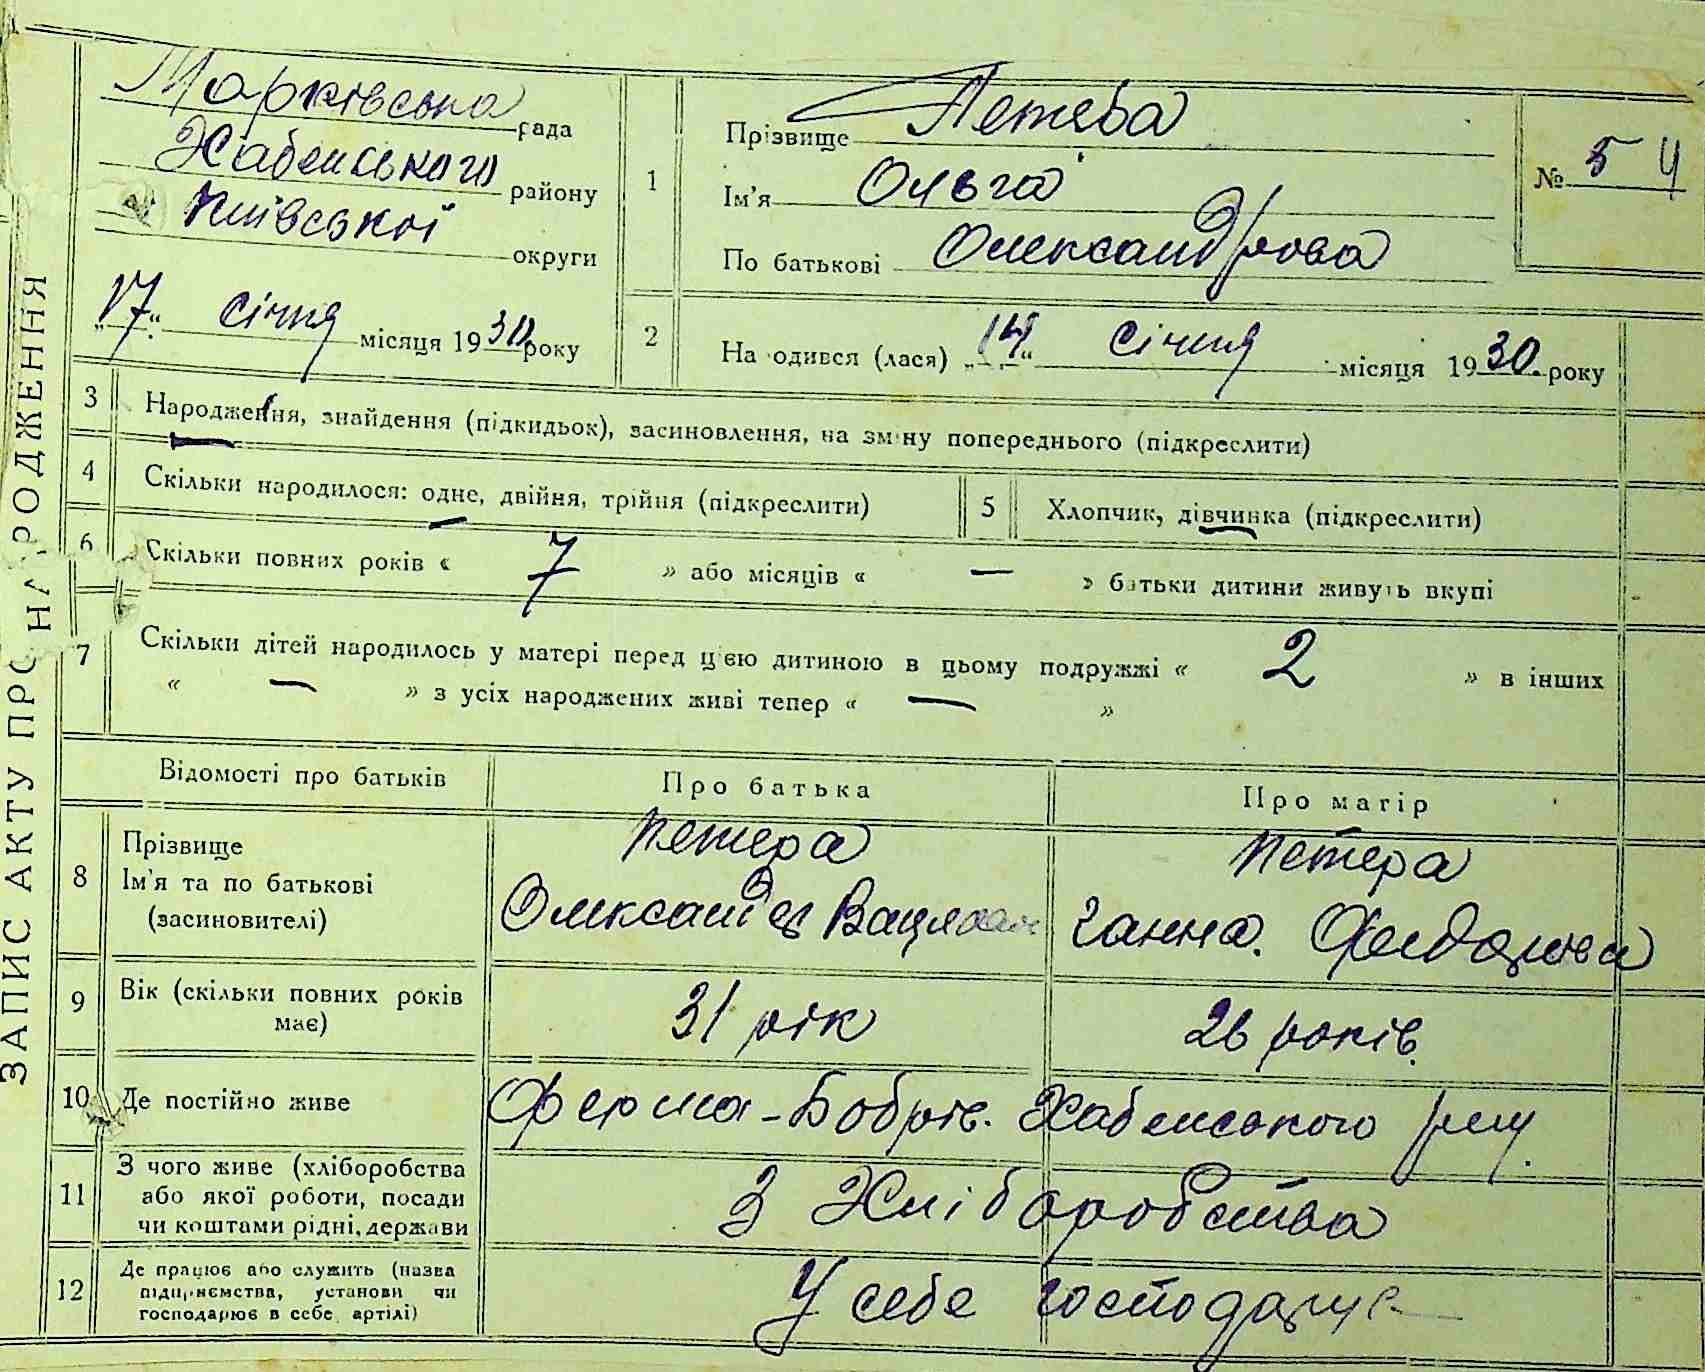 ЗАПИС АКТУ ПРО НАРОДЖЕННЯ
Марківська рада
Хабенського району
Київської округи
„17“ січня місяця 1930 року
1
Прізвище Петеба
Ім'я Ольга
По батькові Олександрова
№ 5 4
2
На одився (лася) „14“ січня місяця 1930. року
3 Народження, знайдення (підкидьок), засиновлення, на зміну попереднього (підкреслити)
4 Скільки народилося: одне, двійня, трійня (підкреслити)
5 Хлопчик, дівчинка (підкреслити)
6 Скільки повних років « 7 » або місяців « — » батьки дитини живуть вкупі
7 Скільки дітей народилось у матері перед цією дитиною в цьому подружжі « 2 » в інших
« — » з усіх народжених живі тепер « — »
Відомості про батьків Про батька Про матір
8 Прізвище
Ім'я та по батькові
(засиновителі)
Петера
Олександр
Петера
Ганна. Федорова
9 Вік (скільки повних років
має)
31 рік
26 років.
10 Де постійно живе
Ферма-Бобрів. Хабенського
11 З чого живе (хліборобства
або якої роботи, посади
чи коштами рідні, держави
З Хліборобства
12 Де працює або служить (назва
підприємства, установи чи
господарює в себе, артілі)
У себе господарує